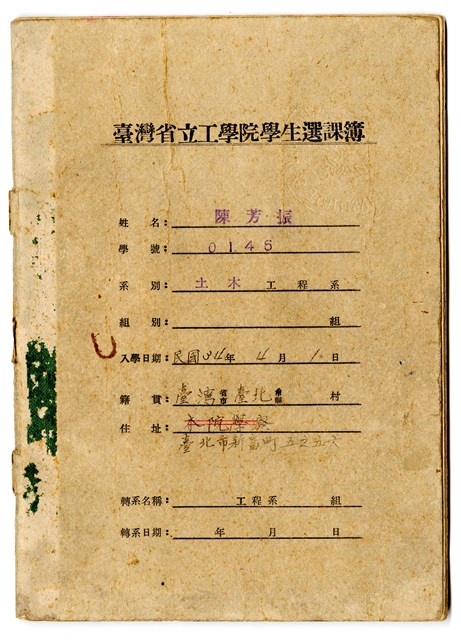 臺灣省立工學院學生選課簿
姓 名: 陳芳振
學 號: 0145
系 別: 土木 工程系
組 別: 組
入學日期: 民國34年 4月 1日
籍 貫: 臺灣省市臺北縣 村
住 址: 本院學寮
臺北市新富町五之五六
轉系名稱: 工程系 組
轉系日期: 年 月 日